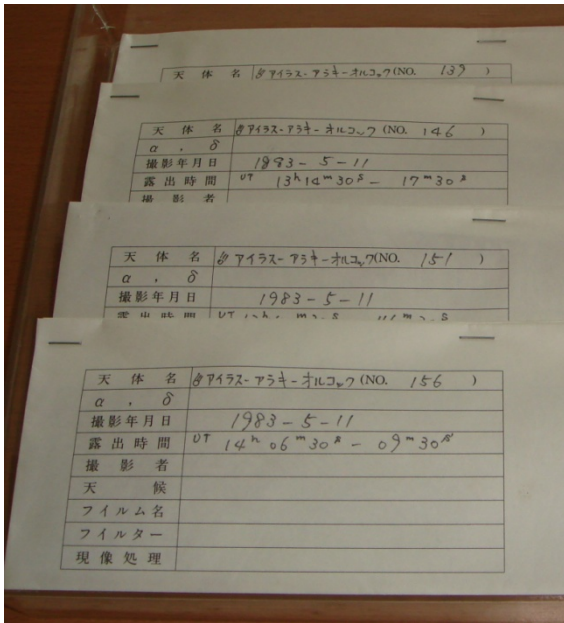 天体名 アイラス-アラキ-オルコック(NO. 139 )
天体名 アイラス-アラキ-オルコック(NO. 146 )
α , δ
撮影年月日 1983-5-11
露出時間 UT 13h14m30s- 17m30s
撮影者
天体名 アイラス-アラキ-オルコック(NO. 151 )
α , δ
撮影年月日 1983-5-11
露出時間 UT
天体名 アイラス-アラキ-オルコック(NO. 156 )
α , δ
撮影年月日 1983-5-11
露出時間 UT 14h 06m30s - 09m30s
撮影者
天候
フイルム名
フイルター
現像処理